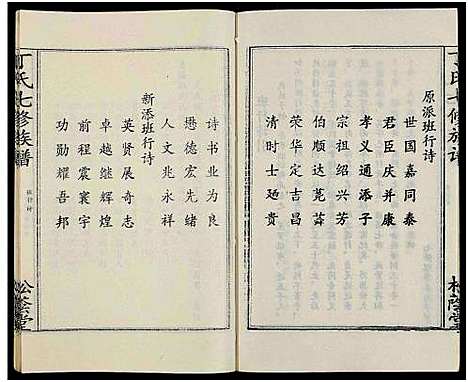 丁氏七修族谱
原派班行诗
世国嘉同泰
君臣庆并康
孝义通添子
宗祖绍兴芳
伯顺达莞
荣华定吉昌
清时士廼贵
松荫堂
诗书业为良
懋德宏先绪
人文兆永祥
新添班行诗
英贤展奇志
卓越继辉煌
前程震寰宇
功勋耀吾邦
丁氏七修族谱
班行诗
松荫堂